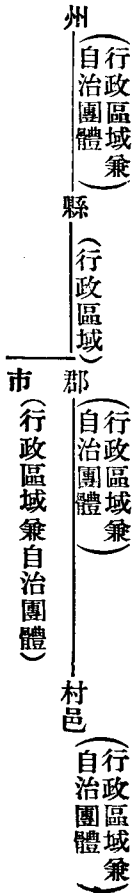 州
(行政區域兼
自治團體)
縣
(行政區域)
郡
(行政區域兼
自治團體)
村邑
(行政區域兼
自治團體)
市
(行政區域兼自治團體)